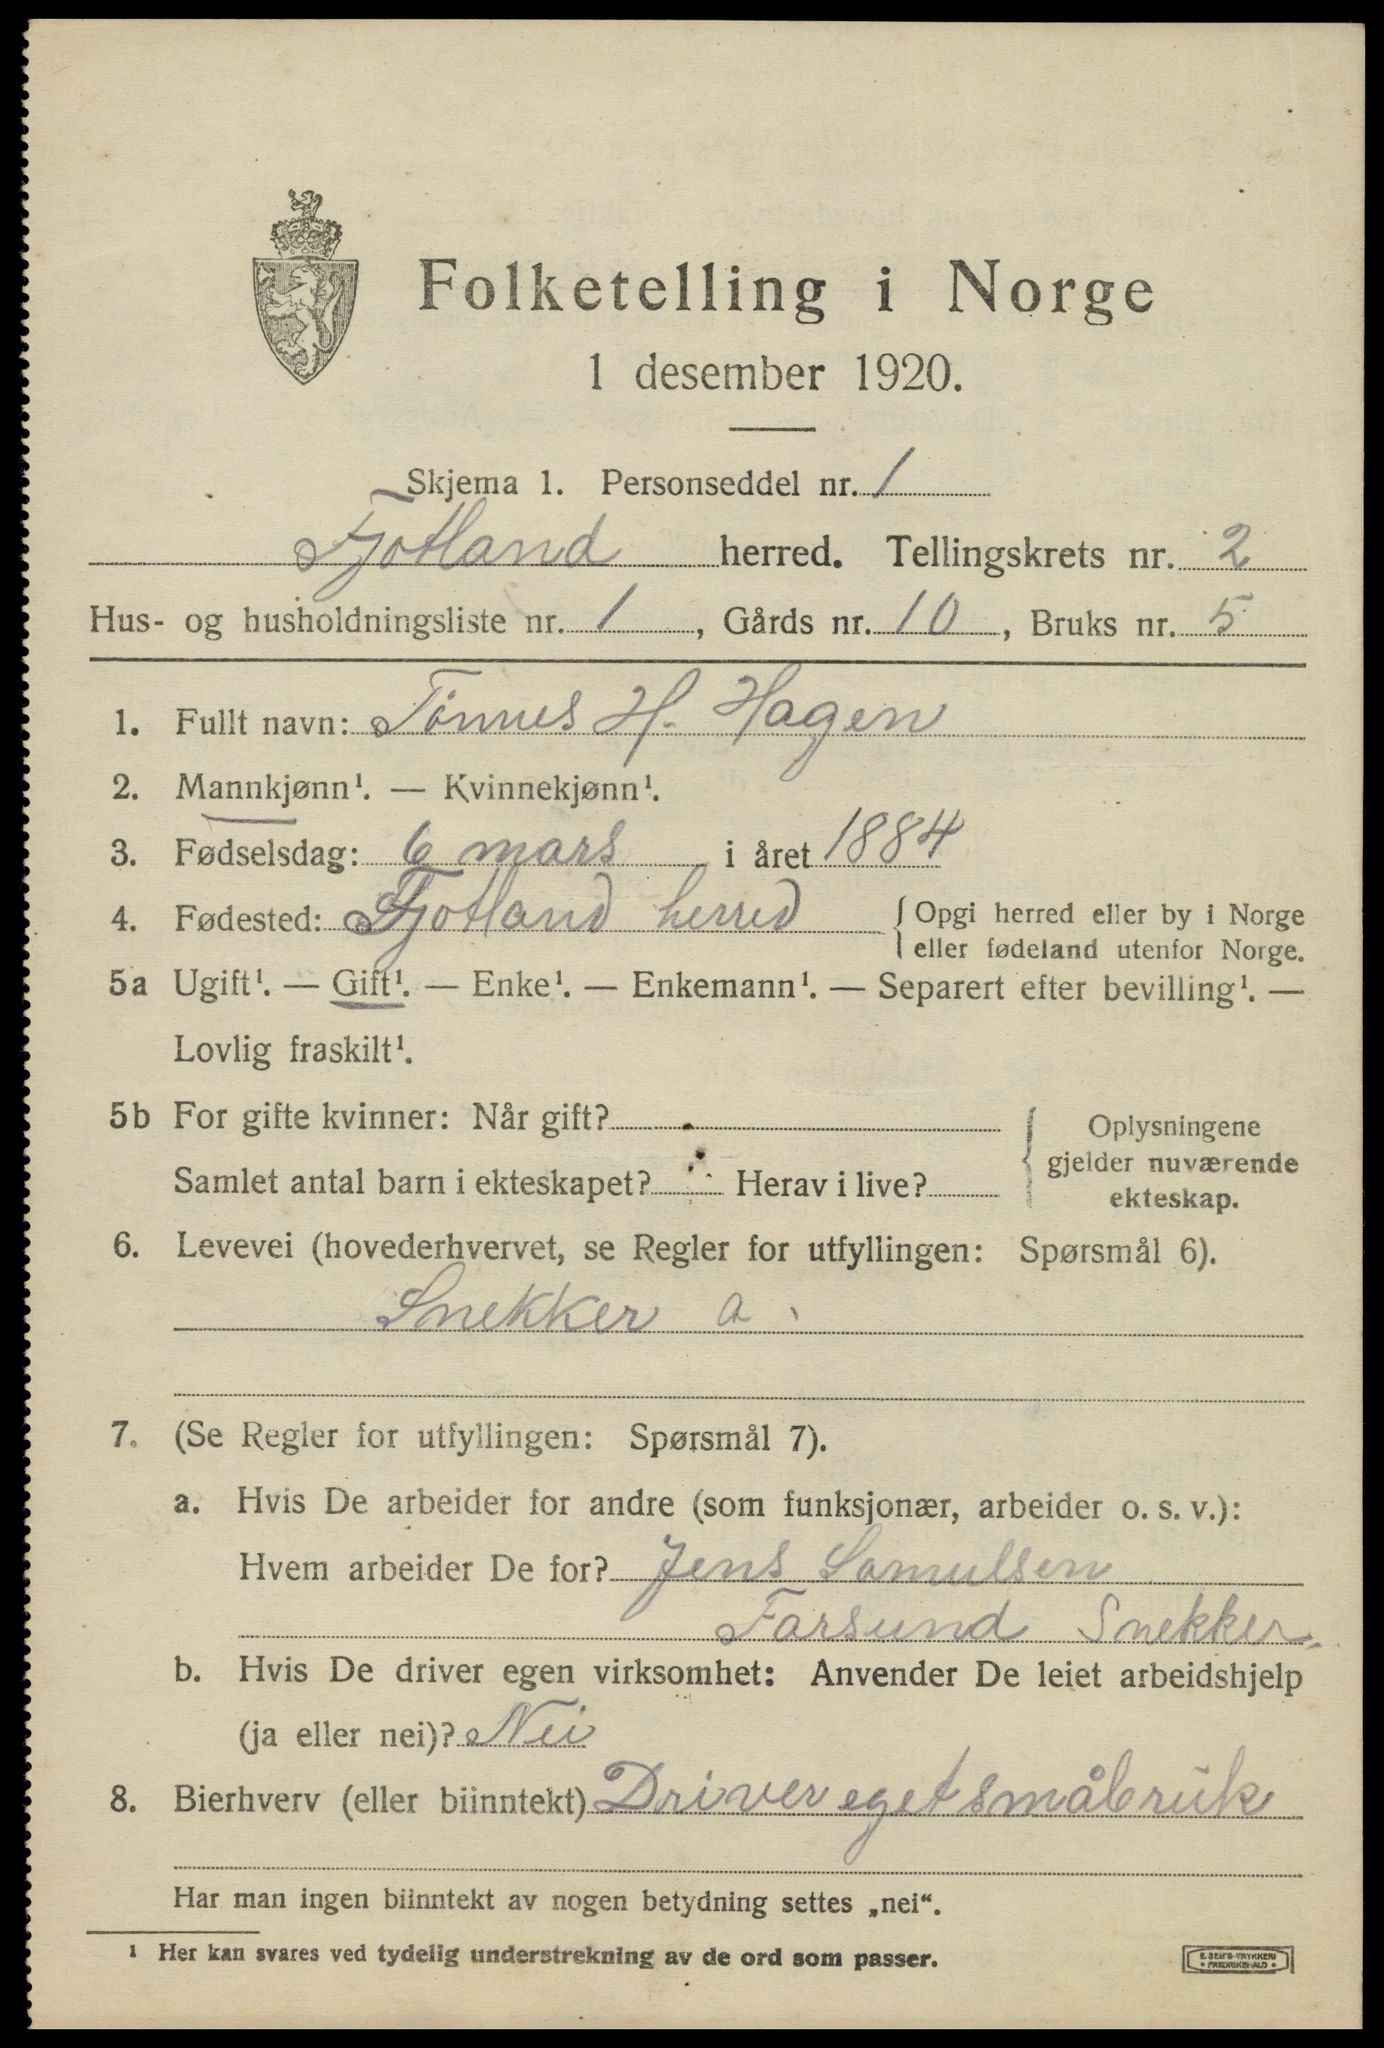 Folketelling i Norge
1 desember 1920.
Skjema 1. Personseddel nr. 1
Fjotland herred. Tellingskrets nr. 2
Hus- og husholdningsliste nr. 1, Gårds nr. 10, Bruks nr. 5
1. Fullt navn: Tönnes H. Hagen
2. Mannkjønn¹. — Kvinnekjønn¹.
3. Fødselsdag: 6 mars i året 1884
4. Fødested: Fjotland herred { Opgi herred eller by i Norge
eller fødeland utenfor Norge.
5a Ugift¹. — Gift¹. — Enke¹. — Enkemann¹. — Separert efter bevilling¹. —
Lovlig fraskilt¹.
5b For gifte kvinner: Når gift? { Oplysningene
gjelder nuværende
Samlet antal barn i ekteskapet? Herav i live? ekteskap.
6. Levevei (hovederhvervet, se Regler for utfyllingen: Spørsmål 6).
Snekker a.
7. (Se Regler for utfyllingen: Spørsmål 7).
a. Hvis De arbeider for andre (som funksjonær, arbeider o. s. v.):
Hvem arbeider De for? Jens Samulsen
Farsund Snekker.
b. Hvis De driver egen virksomhet: Anvender De leiet arbeidshjelp
(ja eller nei)? Nei
8. Bierhverv (eller biinntekt) Driver eget småbruk
Har man ingen biinntekt av nogen betydning settes „nei“.
¹ Her kan svares ved tydelig understrekning av de ord som passer.
E. SEM'S TRYKKERI
• FREDRIKSHALD •